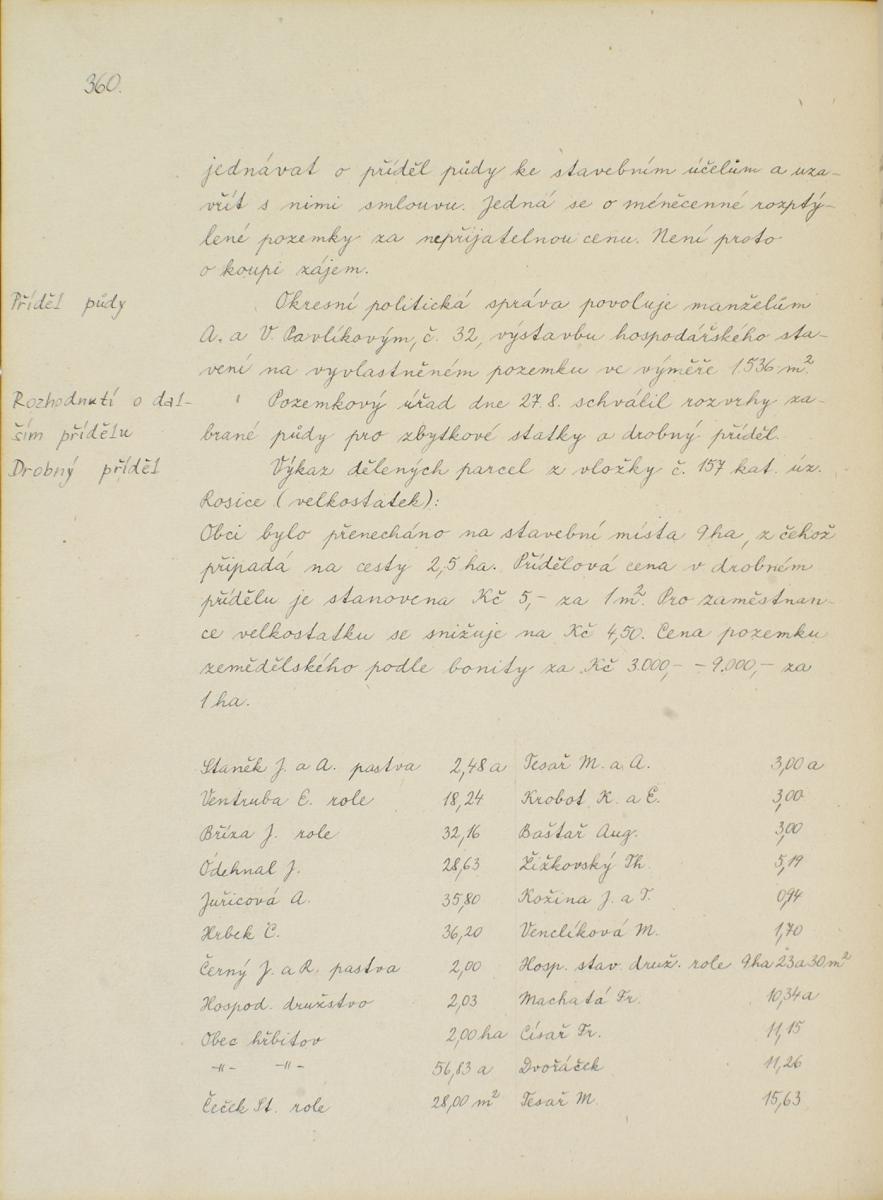 360.
jednávat o příděl půdy ke stavebním účelům a uza-
vřít s nimi smlouvu. Jedná se o méněcenné rozptý-
lené pozemky za nepřijatelnou cenu. Není proto
o koupi zájem.
Příděl půdy
Okresní politická správa povoluje manželům
A. a V. Pavlíkovým, č. 32, výstavbu hospodářského sta-
vení na vyvlastněném pozemku ve výměře 1536 m².
Rozhodnutí o dal-
ším přídělu
Pozemkový úřad dne 27.8. schválil rozvrhy za-
brané půdy pro zbytkové statky a drobný příděl.
Drobný příděl
Výkaz dělených parcel z vložky č. 157 kat. úz.
Rosice (velkostatek):
Obci bylo přenecháno na stavební místa 9ha, z čehož
připadá na cesty 2,5 ha. Přídělová cena v drobném
přídělu je stanovena Kč 5,- za 1m². Pro zaměstnan-
ce velkostatku se snižuje na Kč 4,50. Cena pozemku
zemědělského podle bonity za Kč 3.000,- - 9.000,- za
1 ha.
Staněk J. a A. pastva 2,48 a Tesař M. a A. 3,00 a
Ventruba E. role 18,24 Krobot K. a E. 3,00
Bříza J. role 32,16 Baštař Aug. 3,00
Odehnal J. 28,63 Žižkovský Th. 5,19
Juřicová A. 35,80 Kožina J. a T. 0,94
Hrbek C. 36,20 Venclíková M. 1,70
Černý J. a R. pastva 2,00 Hosp. stav. druž. role 9ha 23a 30 m²
Hospod. družstvo 2,03 Machatá Fr. 10,34 a
Obec hřbitov 2,00 ha Císař Fr. 11,15
-"- -"- 56,83 a Dvořáček 11,26
Čeček St. role 28,00 m² Tesař M. 15,63